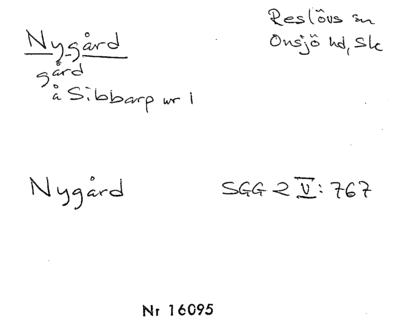 Nygård
Reslövs sn
Onsjö hd, Sk
gård
å Sibbarp nr 1
Nygård
SGG 2 V: 767
Nr 16095